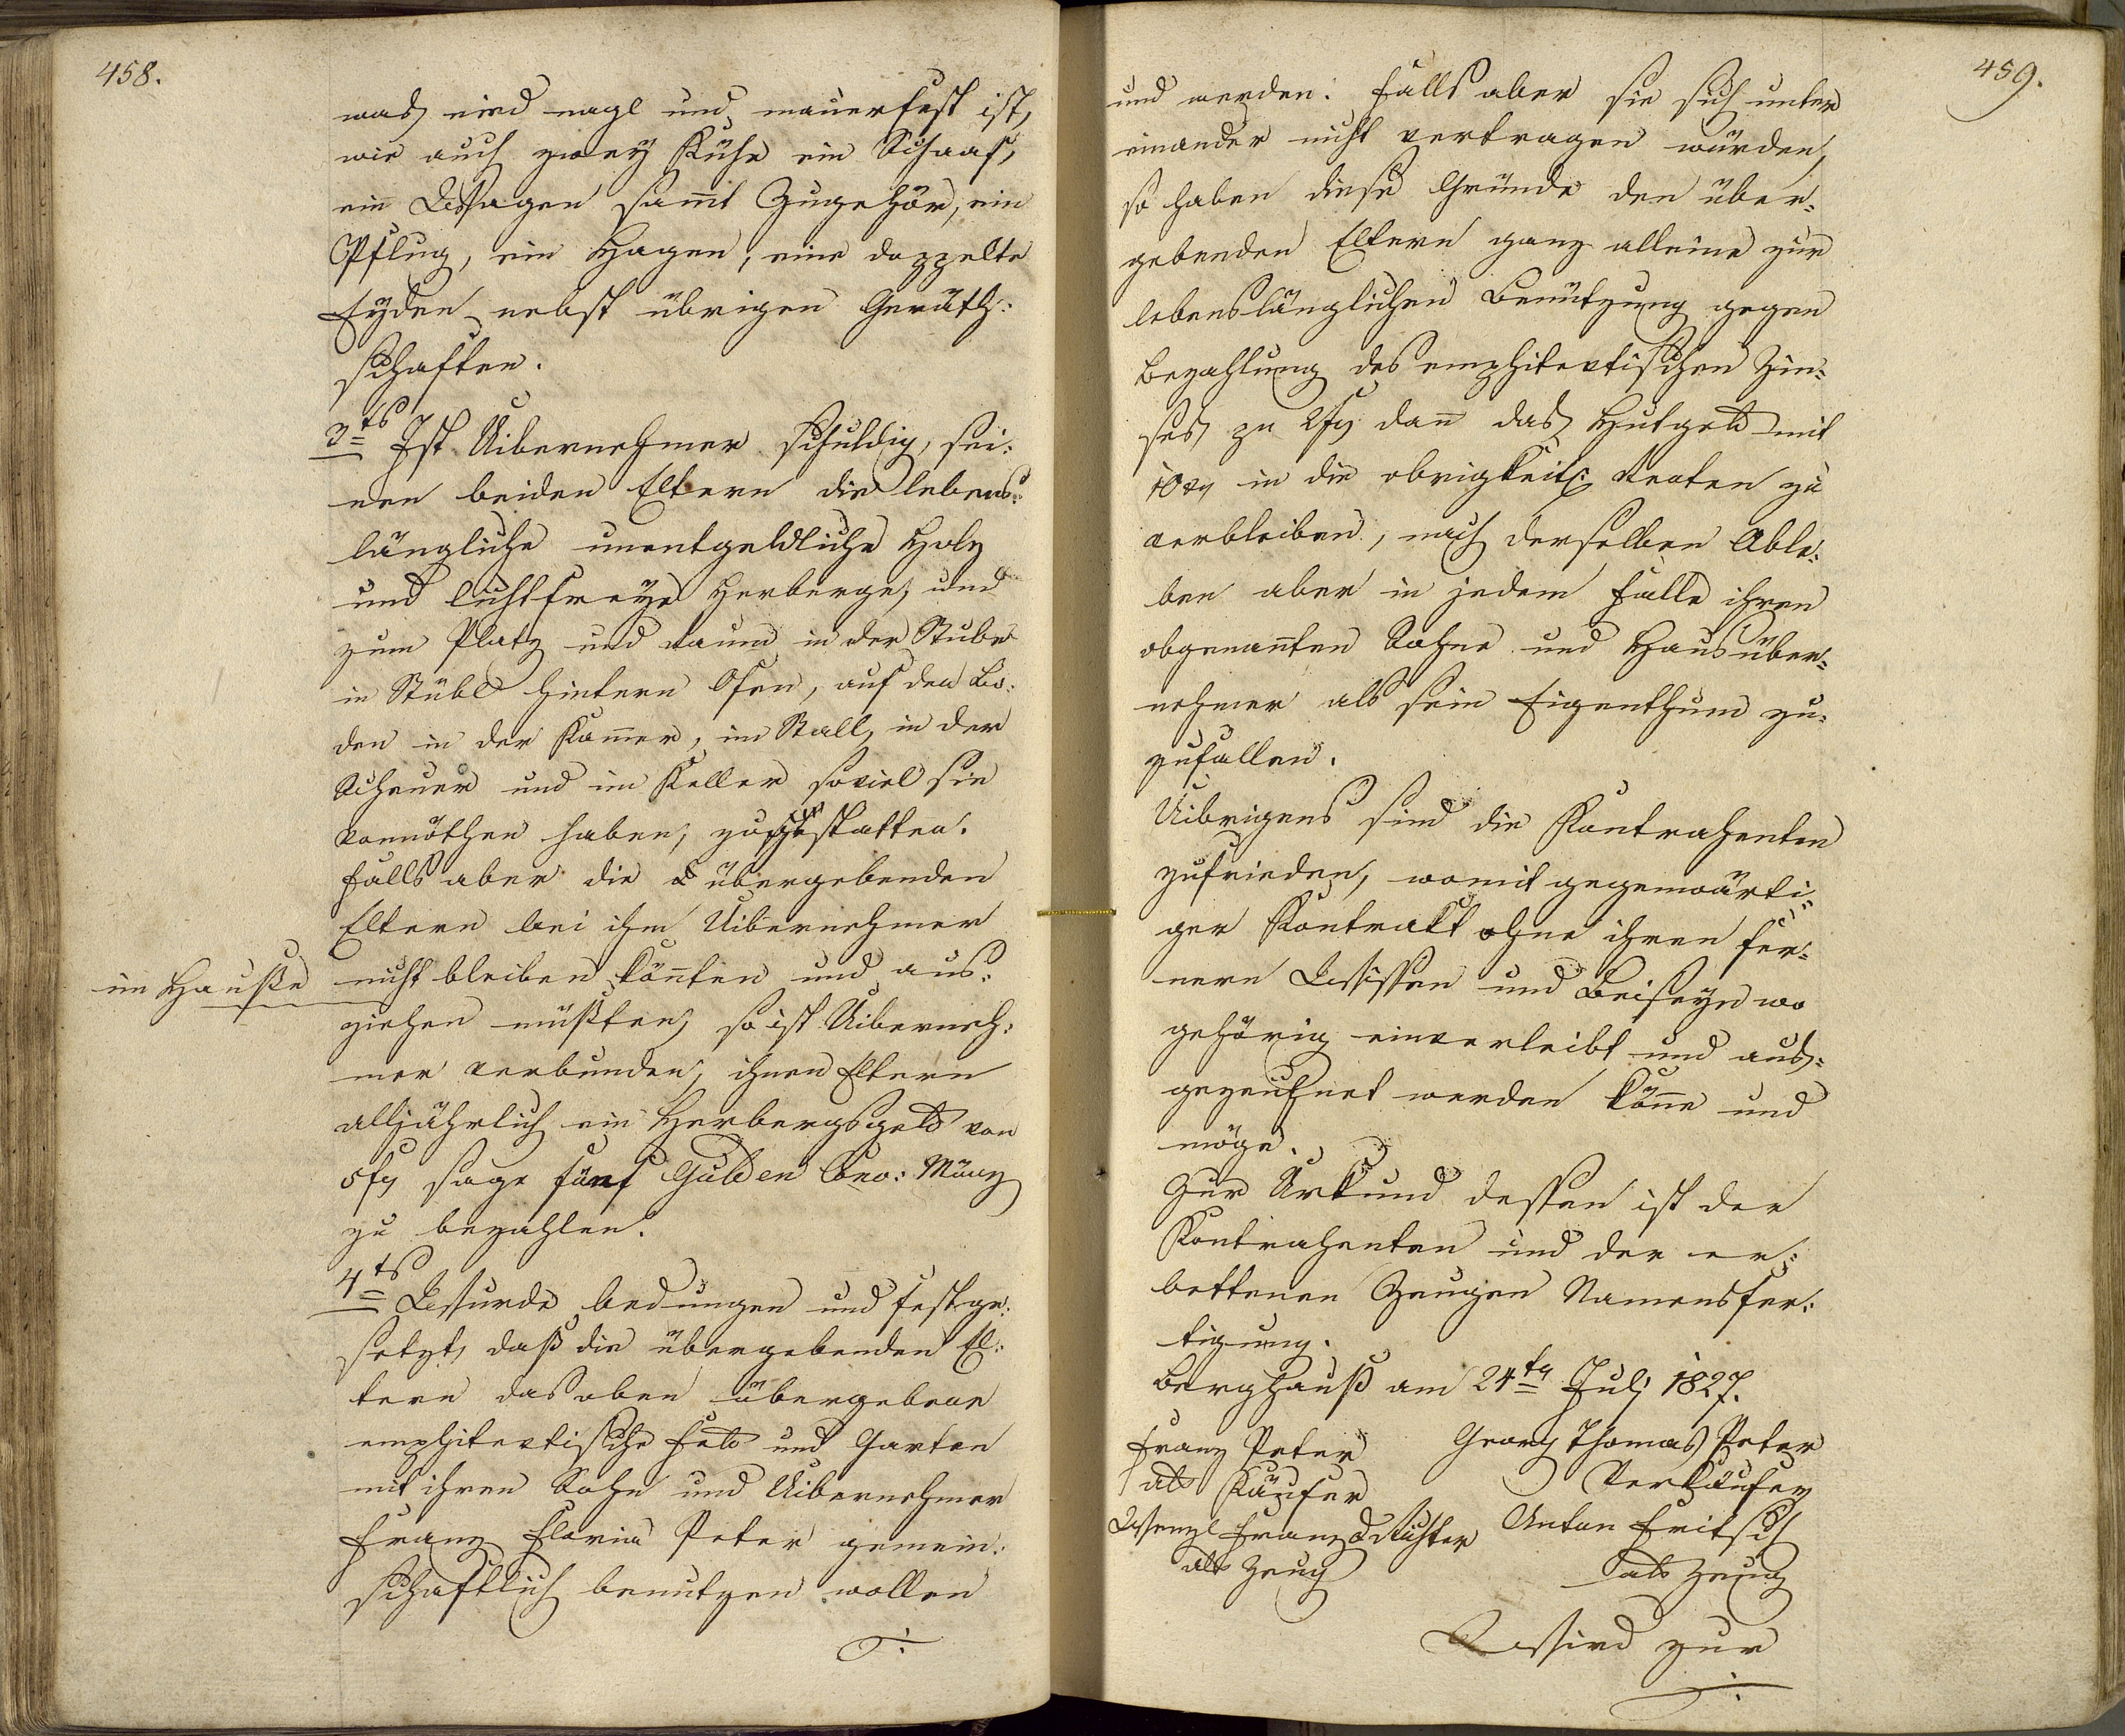 458.
was nied nagl und mauerfest ist,
wie auch zwey Kühe ein Schaaf,
ein Wagen samt Zugehör, ein
Pflug, ein Hagen, eine doppelte
Eyden nebst übrigen Geräth:
schaften.
3ts Ist Uibernehmer schuldig, sei:
nen beiden Eltern die lebens:
längliche unentgeldliche Holz
und lichtfreye Herberge, und
zum Platz und raum in der Stube
in Stübl hintern Ofen, auf den Bo:
den in der Kamer, im Stall, in der
Scheuer und im Keller soviel sie
vonnöthen haben, zu gestatten.
Falls aber die übergebenden
Eltern bei ihm Uibernehmer
im Hauße
nicht bleiben könten und aus:
ziehen müßten, so ist Uiberneh:
mer verbunden, ihnen Eltern
alljährlich ein Herbergsgeld von
5 fr sage fünf Gulden Conv: Münz
zu bezahlen.
4ts Wurde bedungen und festge:
setzt, daß die übergebenden El:
tern das oben übergebene
emphitevtische Feld und Garten
mit ihren Sohn und Uibernehmer
Franz Florian Peter gemein:
schaftlich benutzen wollen
./.
459.
und werden. Falls aber sie sich unter
einander nicht vertragen würden,
so haben diese Gründe den über:
gebenden Eltern ganz alleine zur
lebenslänglichen Benützung gegen
Bezahlung des emphitevtischen Zin:
ses zu 2 fr dan das Hutgeld mit
10 xr in die obrigkeitl: Renten zu
verbleiben, nach derselben Able:
ben aber in jedem Falle ihren
obgenanten Sohne und Hausüber:
nehmer als sein Eigenthum zu:
zufallen.
Uibrigens sind die Kontrahenten
zufrieden, womit gegenwärti:
ger Kontrakt ohne ihren fer:
nern Wissen und Beiseyn wo
gehörig einverleibt und aus:
gezeichnet werden könne und
möge.
Zur Urkund dessen ist der
Kontrahenten und der er:
bettenen Zeugen Namensfer:
tigung.
Berghauß am 24tn Juli 1827.
Franz Peter Georg Thomas Peter
als Käufer Verkäufer
Wenzl Franz Richter Anton Fritsch
als Zeug als Zeug
Wird zur
./.